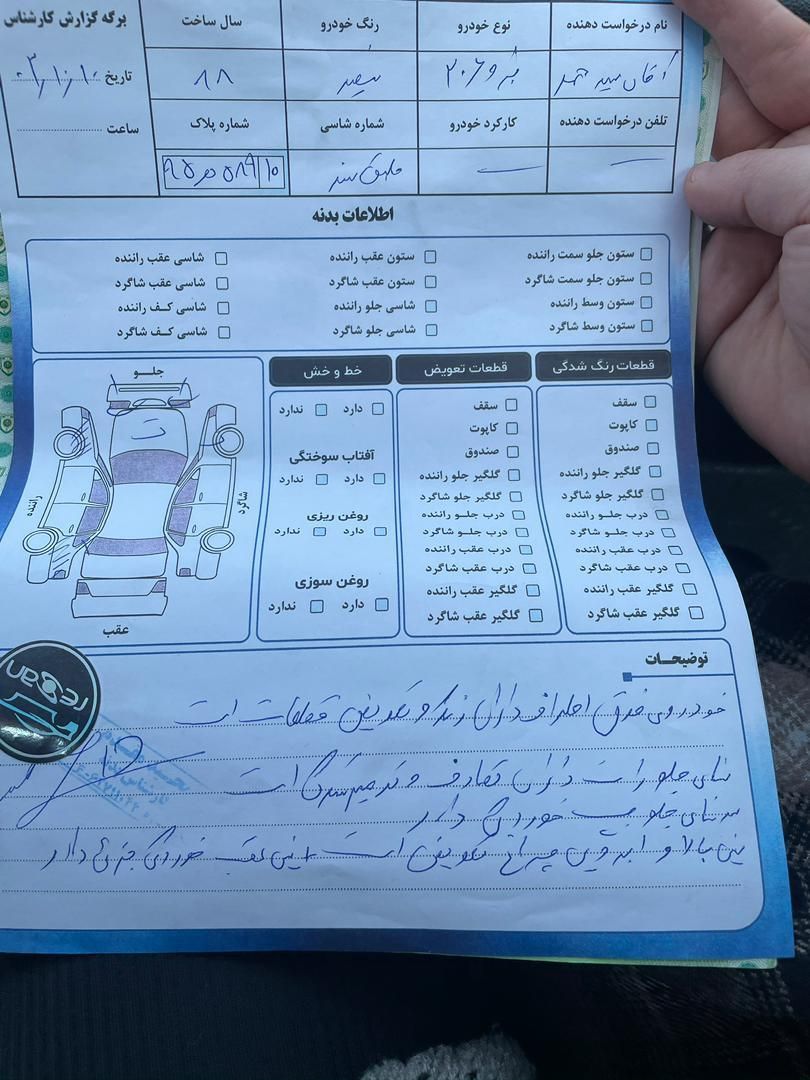 برگه گزارش کارشناس
نام درخواست دهنده
نوع خودرو
رنگ خودرو
سال ساخت
آقای سید
پژو ۲۰۶
سفید
۸۸
تاریخ ۰۳/۱۰/۱۰
تلفن درخواست دهنده
کارکرد خودرو
شماره شاسی
شماره پلاک
ساعت
اطلاعات بدنه
ستون جلو سمت راننده
ستون عقب راننده
شاسی عقب راننده
ستون جلو سمت شاگرد
ستون عقب شاگرد
شاسی عقب شاگرد
ستون وسط راننده
شاسی جلو راننده
شاسی کف راننده
ستون وسط شاگرد
شاسی جلو شاگرد
شاسی کف شاگرد
قطعات رنگ شدگی
سقف
کاپوت
صندوق
گلگیر جلو راننده
گلگیر جلو شاگرد
درب جلو راننده
درب جلو شاگرد
درب عقب راننده
درب عقب شاگرد
گلگیر عقب راننده
گلگیر عقب شاگرد
قطعات تعویض
سقف
کاپوت
صندوق
گلگیر جلو راننده
گلگیر جلو شاگرد
درب جلو راننده
درب جلو شاگرد
درب عقب راننده
درب عقب شاگرد
گلگیر عقب راننده
گلگیر عقب شاگرد
خط و خش
دارد ندارد
آفتاب سوختگی
دارد ندارد
روغن ریزی
دارد ندارد
روغن سوزی
دارد ندارد
جلو
ت
راننده
شاگرد
عقب
توضیحات
خودروی فوق اطراف دارای رنگ و تعویض قطعات است
جلو راست دارای تصادف و ترمیم شدگی است
جلو چپ خوردگی دارد
سینی بالا و ابرویی چراغ تعویض است سینی عقب خوردگی جزئی دارد